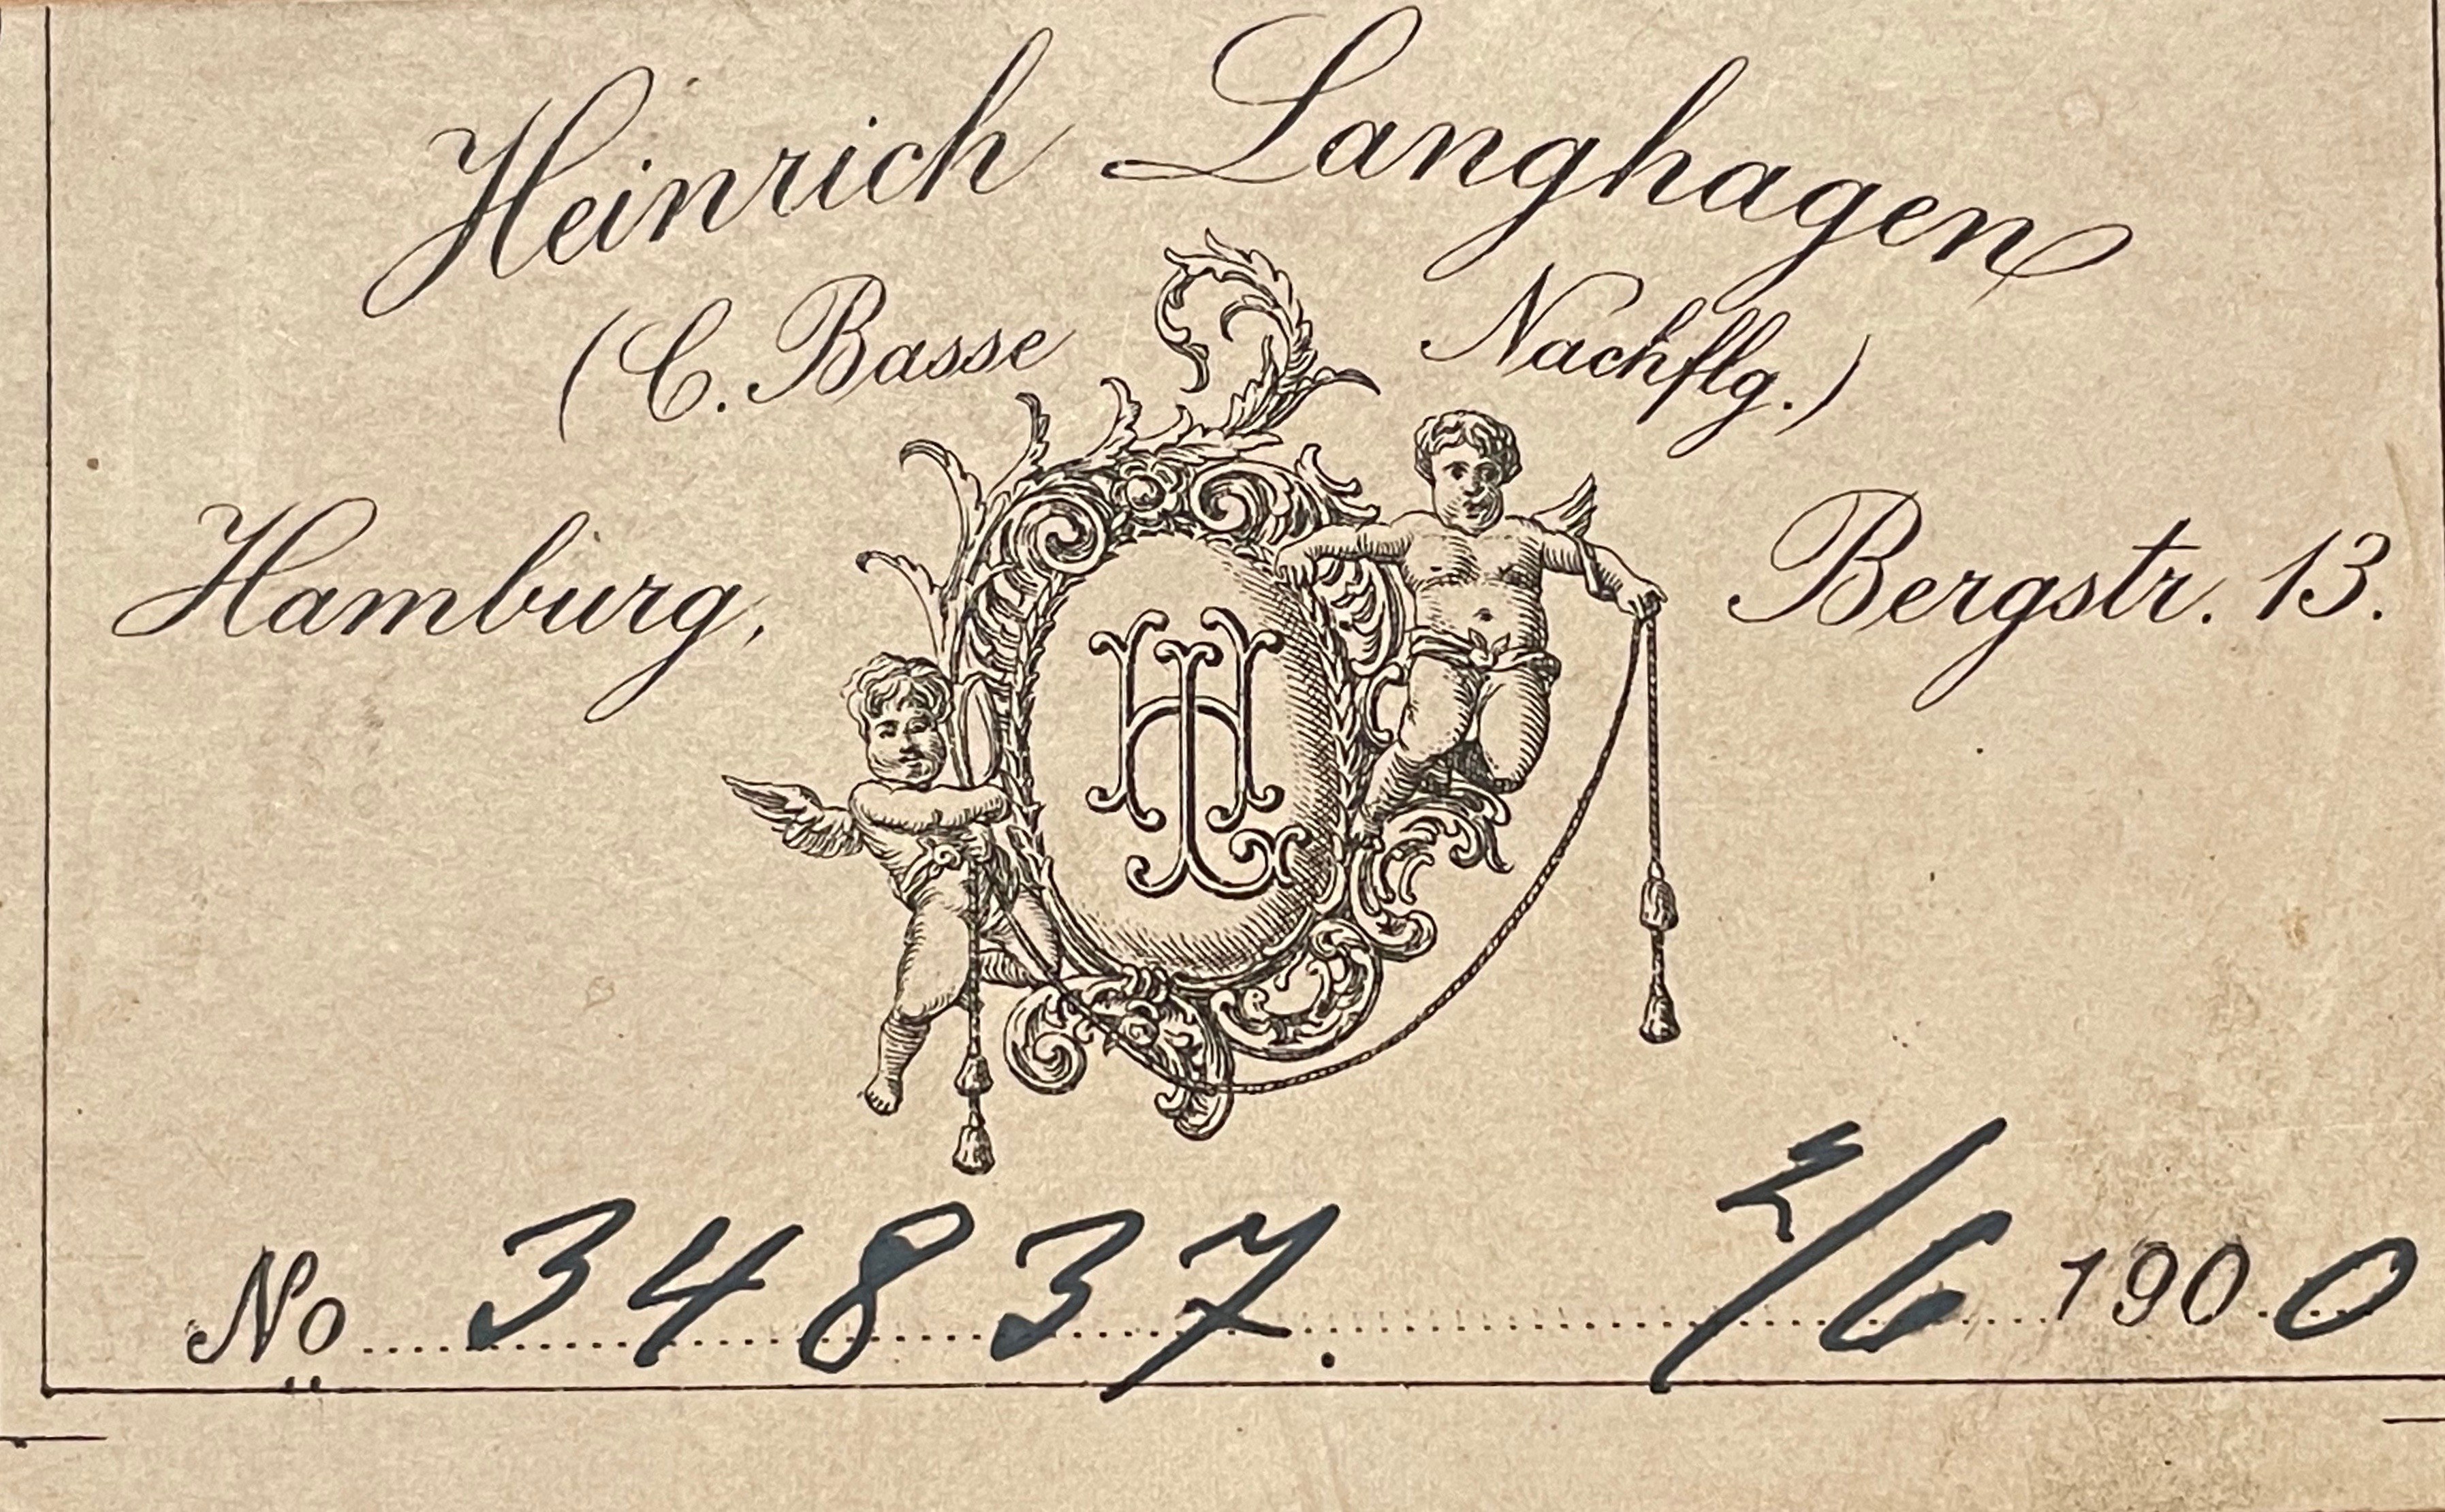 Heinrich Langhagen
(C. Basse Nachflg.)
Hamburg, Bergstr. 13.
HL
No 34837. 2/6 1900